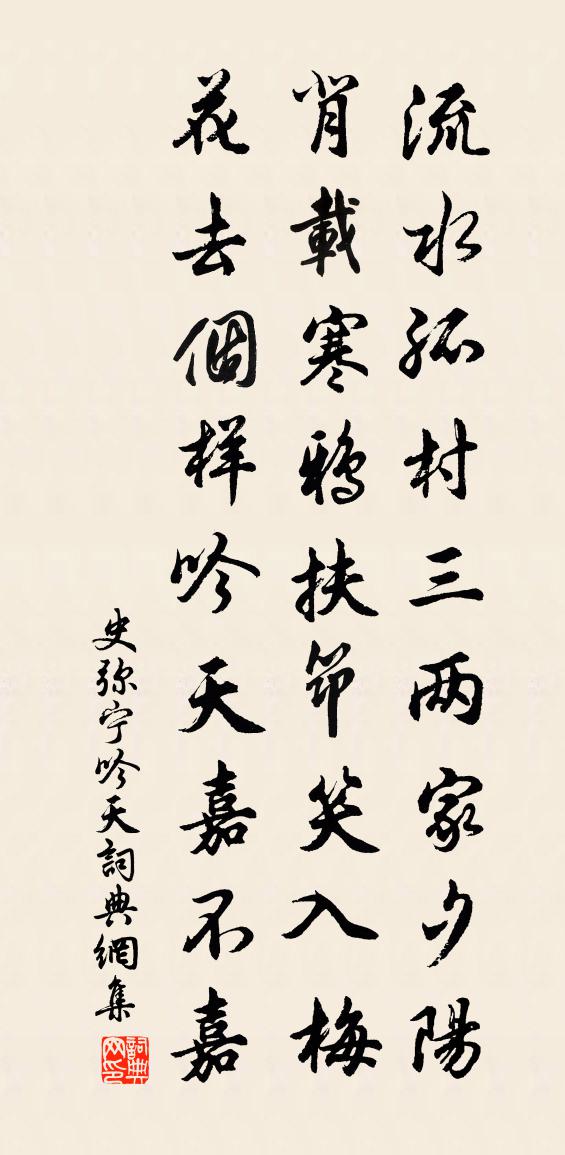 流水孤村三两家夕陽
背載寒鴉扶筇笑入梅
花去個样吟天嘉不嘉
史弥宁吟天詞典網集
詞典网印